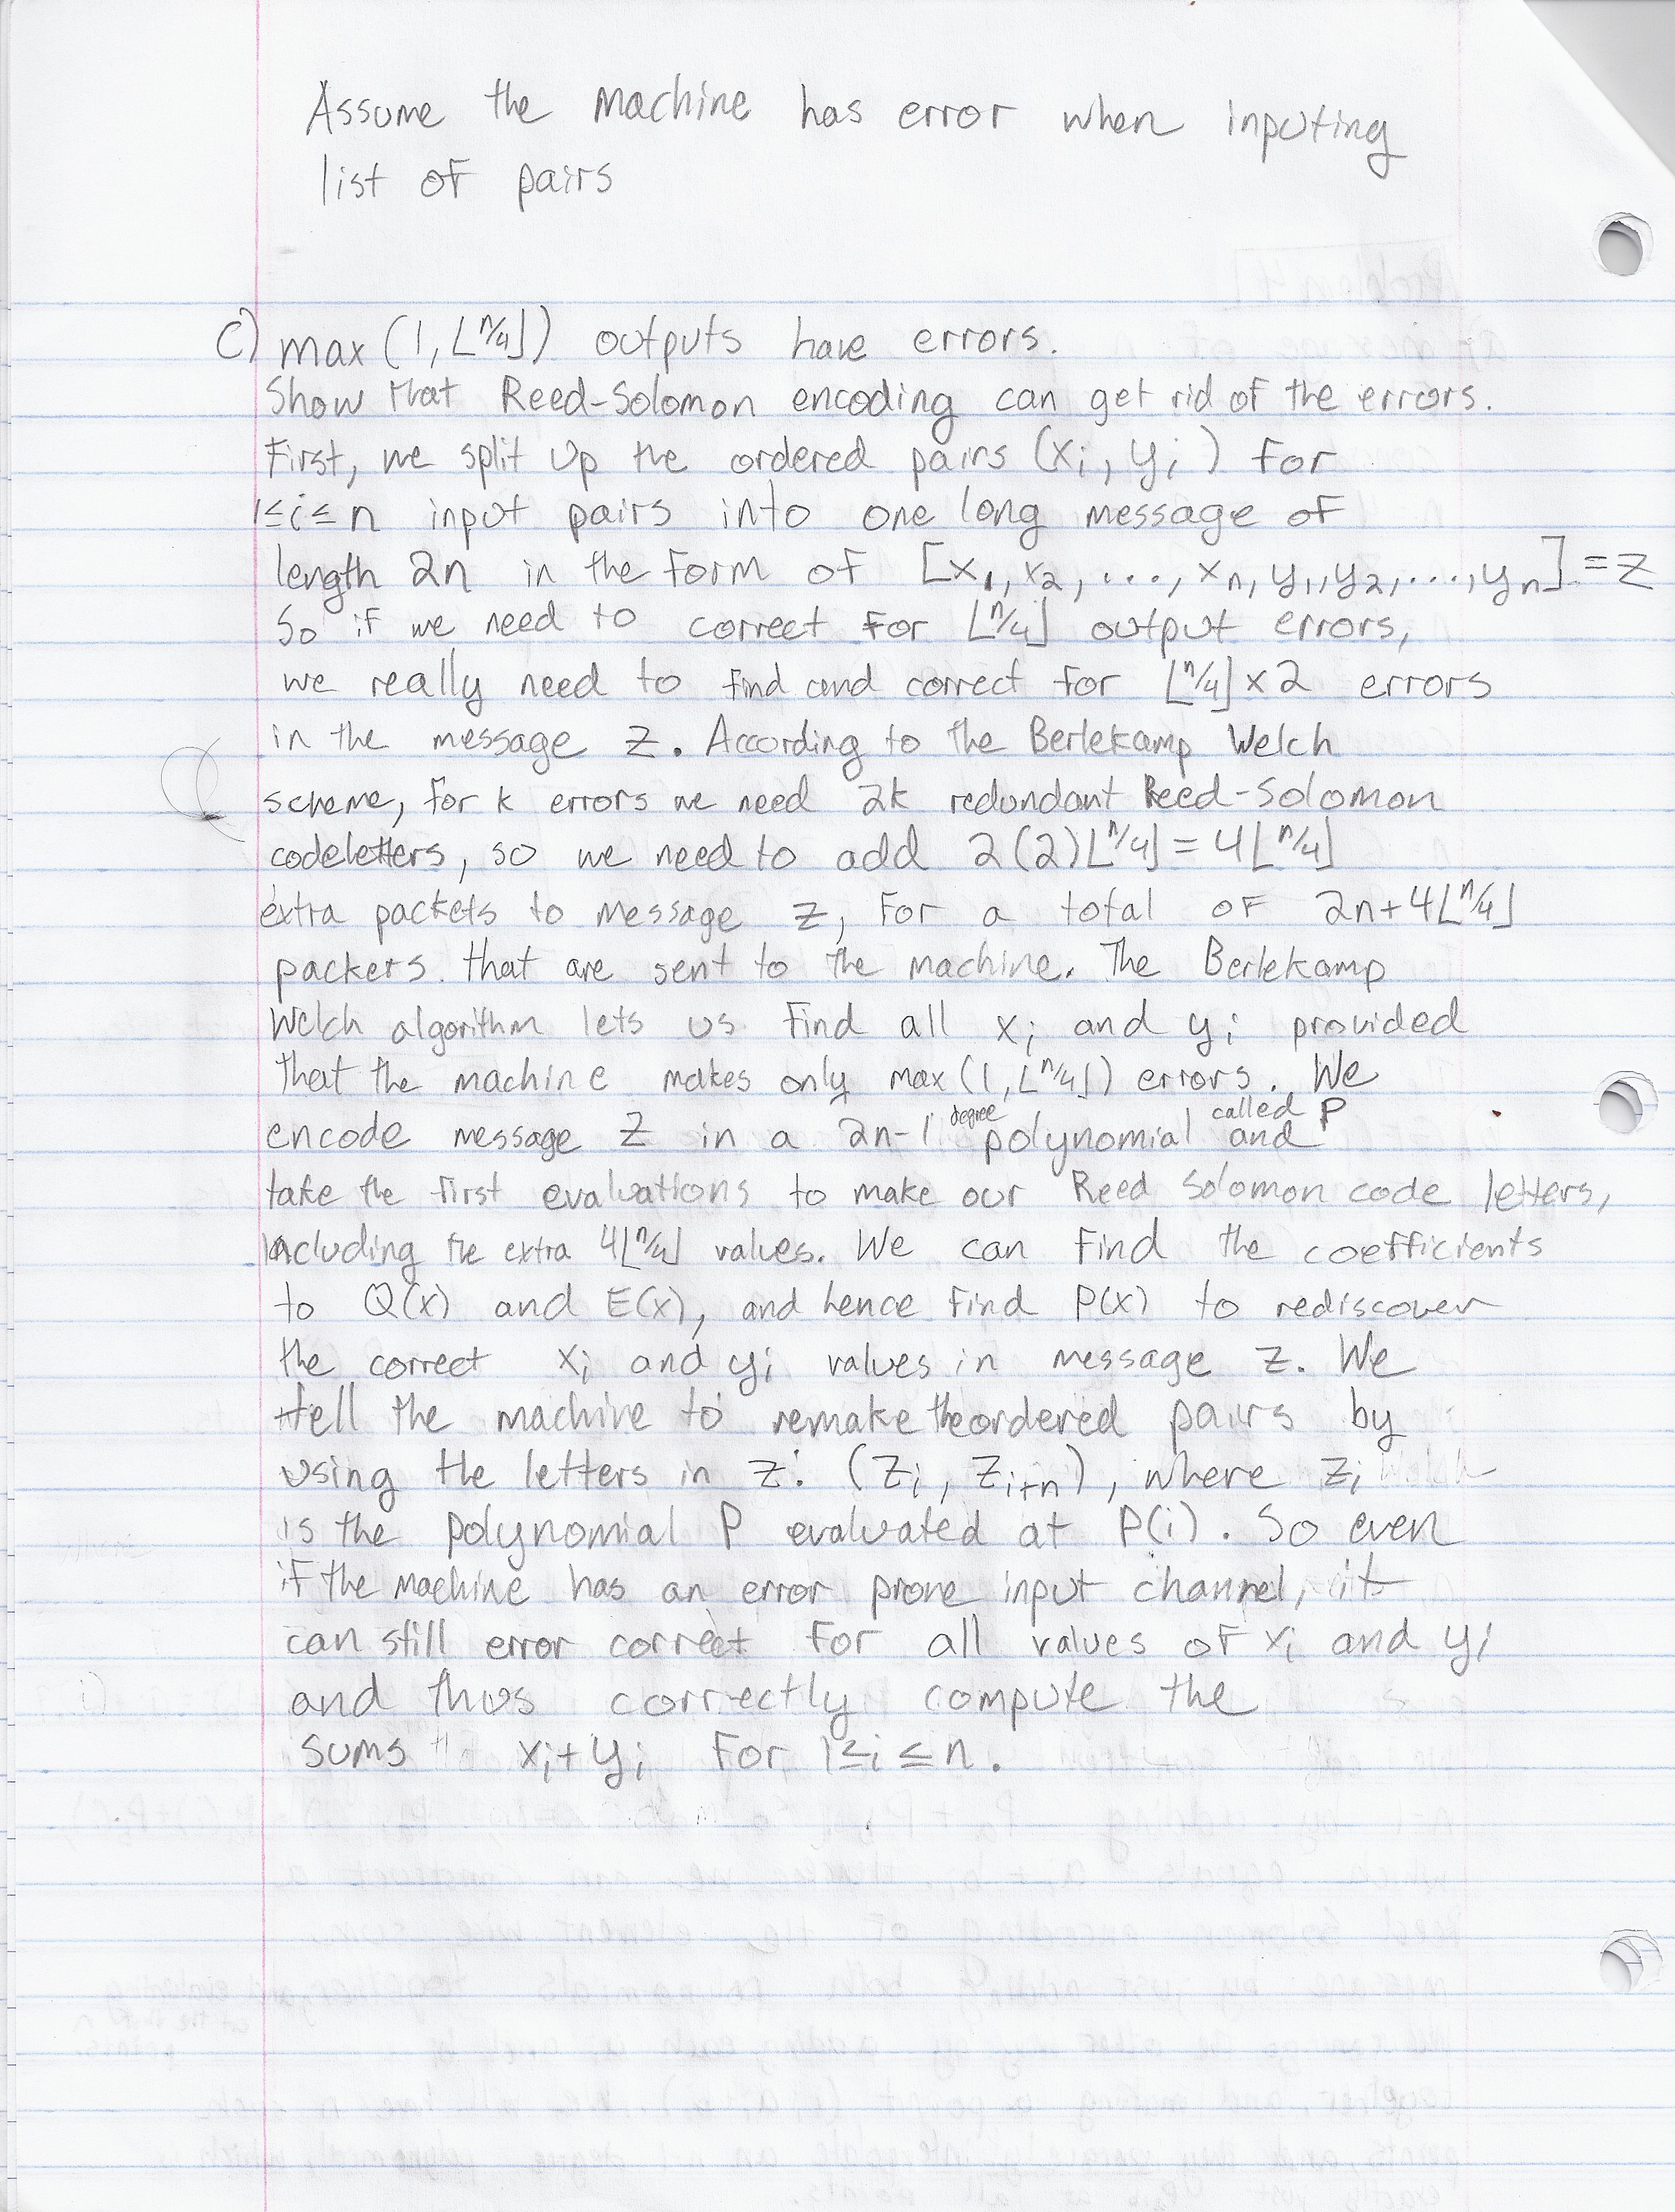 Assume the machine has error when inputing
list of pairs
c) max (1, ⌊n/4⌋) outputs have errors.
Show that Reed-Solomon encoding can get rid of the errors.
First, we split up the ordered pairs (xi, yi) for
1≤i≤n input pairs into one long message of
length 2n in the form of [x1, x2, ..., xn, y1, y2, ..., yn] = z
So if we need to correct for ⌊n/4⌋ output errors,
we really need to find and correct for ⌊n/4⌋ x 2 errors
in the message z. According to the Berlekamp Welch
scheme, for k errors we need 2k redundant Reed-Solomon
codeletters, so we need to add 2(2)⌊n/4⌋ = 4⌊n/4⌋
extra packets to message z, for a total of 2n+4⌊n/4⌋
packers. that are sent to the machine. The Berlekamp
Welch algorithm lets us find all xi and yi provided
that the machine makes only max (1, ⌊n/4⌋) errors. We
encode message z in a 2n-1 degree polynomial called P and
take the first evaluations to make our Reed Solomon code letters,
including the extra 4⌊n/4⌋ values. We can find the coefficients
to Q(x) and E(x), and hence find P(x) to rediscover
the correct xi and yi values in message z. We
tell the machine to remake the ordered pairs by
using the letters in z: (zi, zi+n), where zi
is the polynomial P evaluated at P(i). So even
if the machine has an error prone input channel, it
can still error correct for all values of xi and yi
and thus correctly compute the
sums xi + yi for 1≤i≤n.